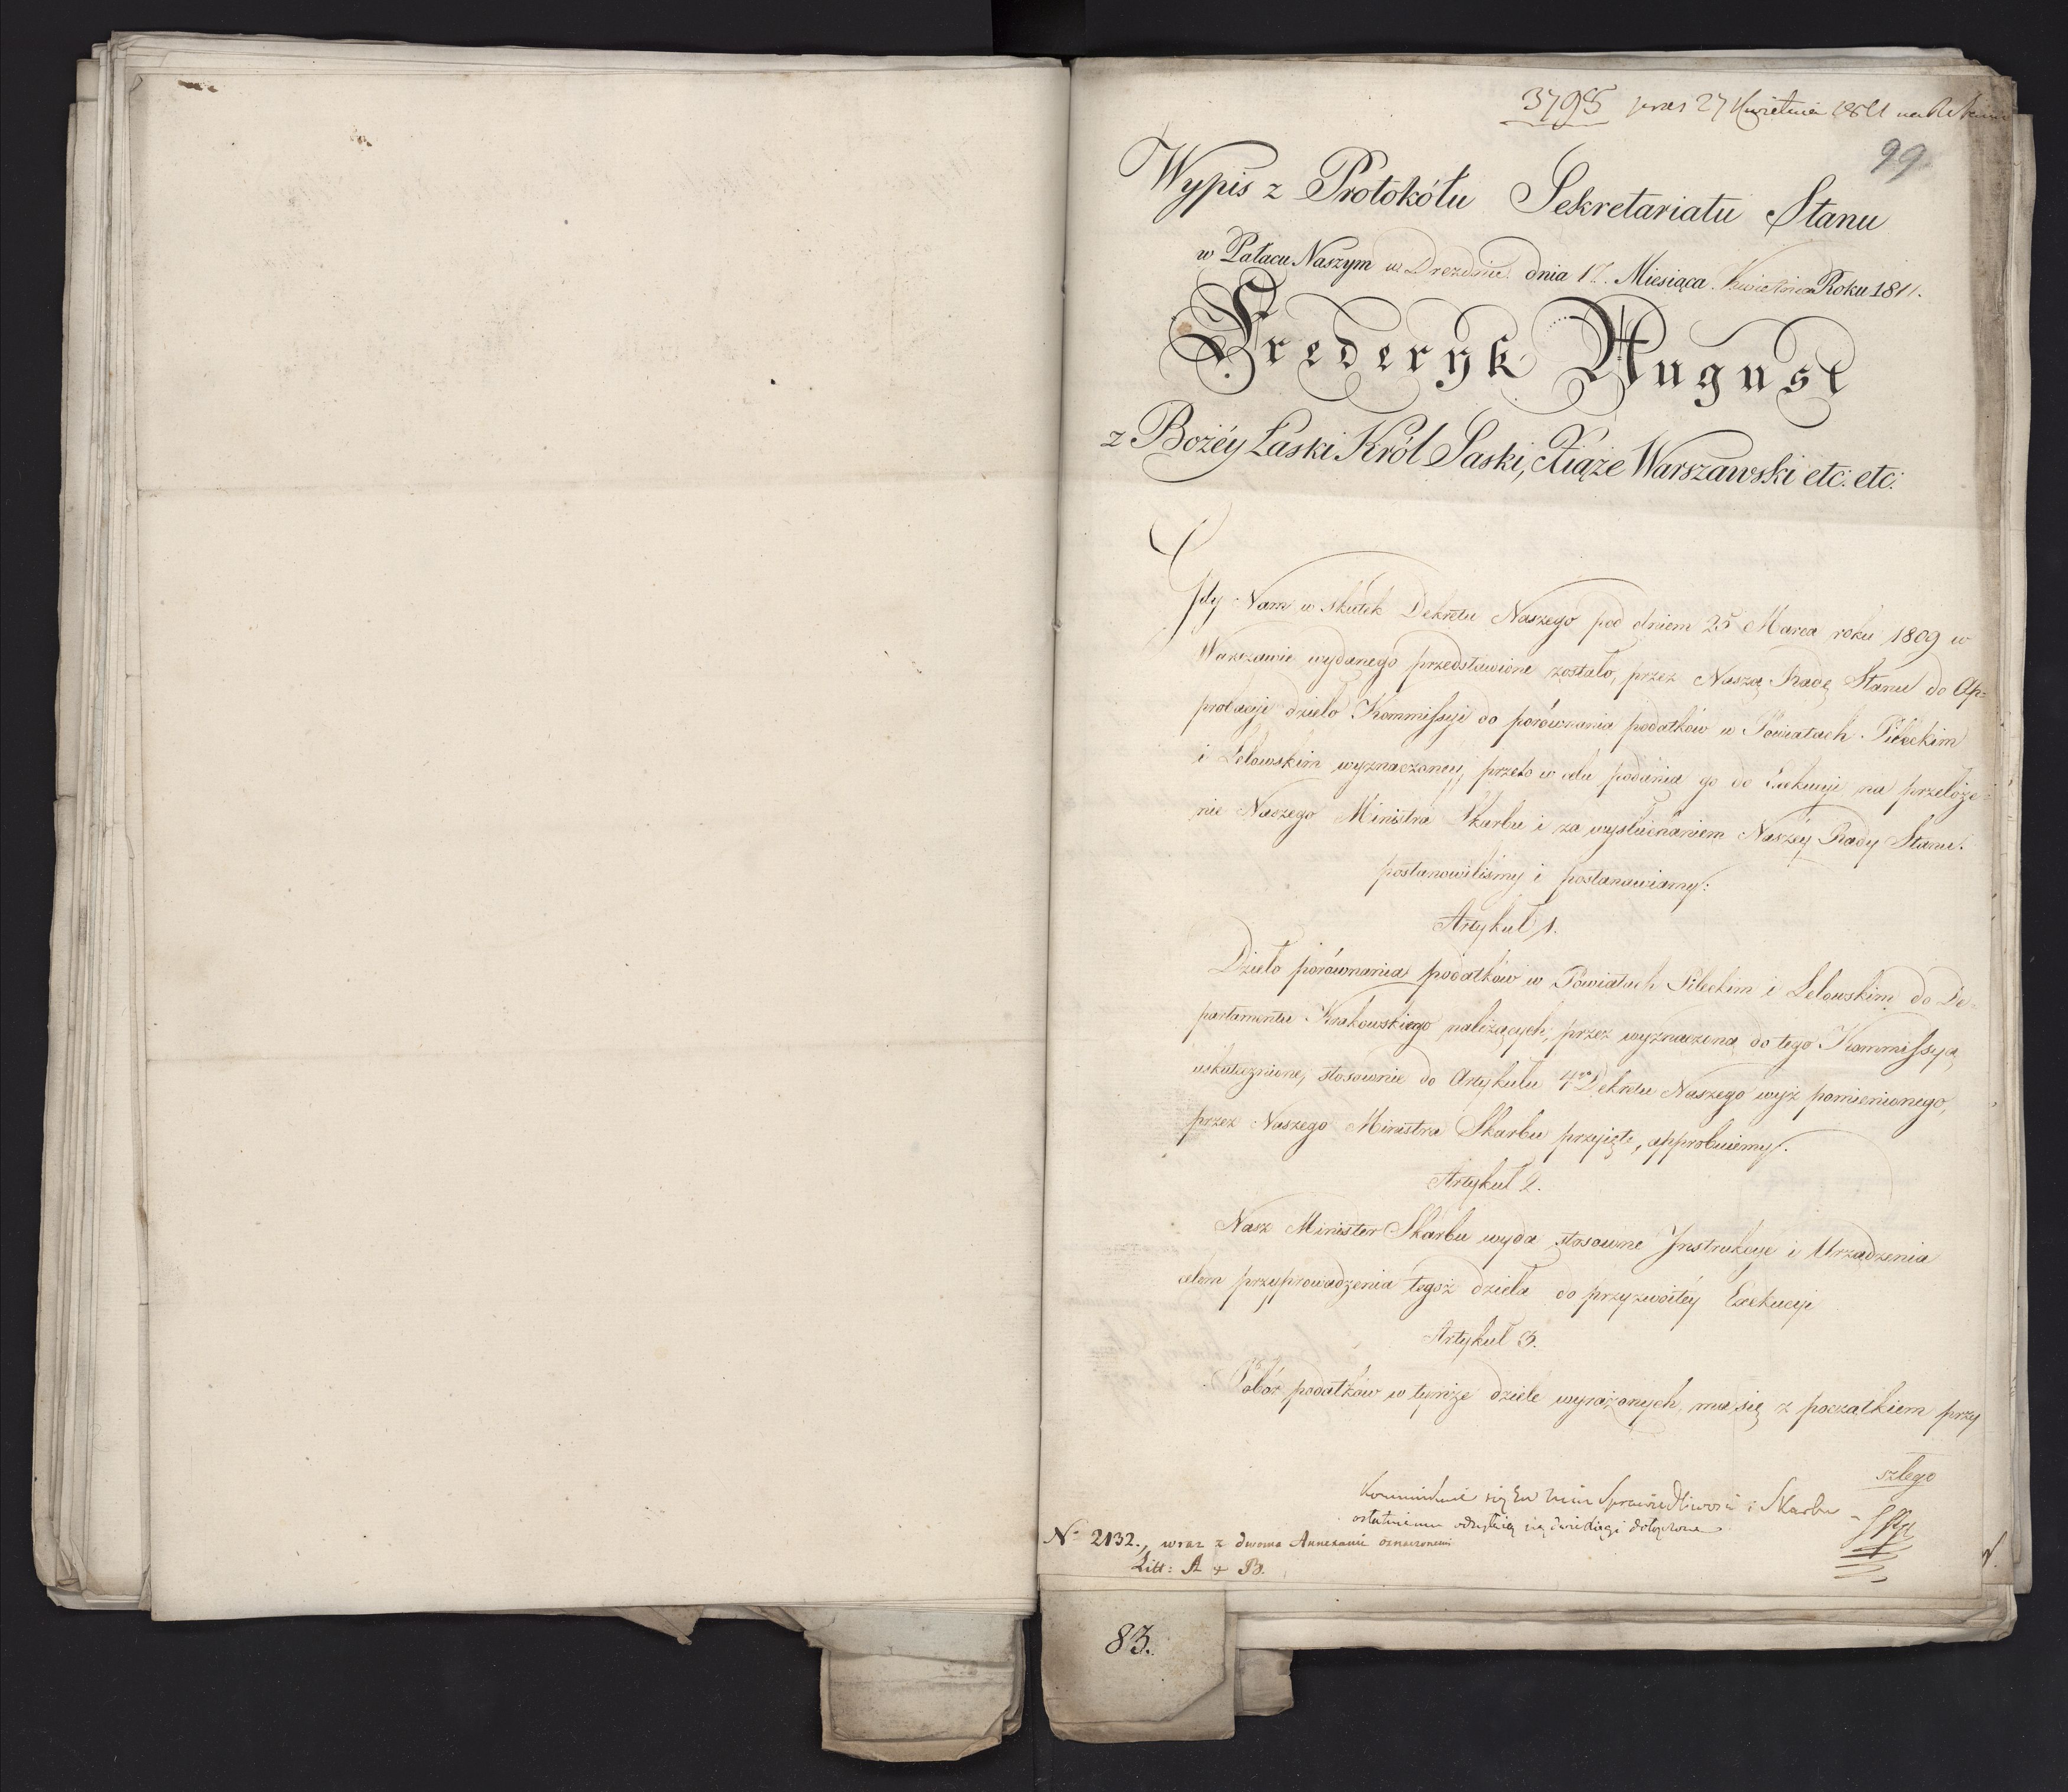 3798 praes 27 Kwietnia 1811
99
Wypis z Protokółu Sekretariatu Stanu
w Pałacu Naszym w Dreznie dnia 17. Miesiąca Kwietnia Roku 1811.
Frederyk August
z Bożéy Łaski Król Saski, Xiąże Warszawski etc: etc:
Gdy Nam w skutek Dekretu Naszego pod dniem 25 Marca roku 1809 w
Warszawie wydanego przedstawione zostało, przez Naszą Radę Stanu do Ap=
probacyi dzieło Kommissyi do porównania podatków w Powiatach Pileckim
i Lelowskim wyznaczoney, przeto w celu podania go do Exekucyi na przełoże=
nie Naszego Ministra Skarbu i za wysłuchaniem Naszéy Rady Stanu.
postanowiliśmy i postanawiamy:
Artykuł 1.
Dzieło porównania podatków w Powiatach Pileckim i Lelowskim do De=
partamentu Krakowskiego należących, przez wyznaczoną do tego Kommissyą
uskutecznione, stosownie do Artykułu 4go Dekretu Naszego wyż pomienionego,
przez Naszego Ministra Skarbu przyięte, approbuiemy.
Artykuł 2.
Nasz Minister Skarbu wyda stosowne Instrukcye i Urządzenia
celem przyprowadzenia tegoż dzieła do przyzwoitéy Exekucyi
Artykuł 3.
Pobór podatków w tymże dziele wyrażonych, ma się z początkiem przy
szłego
Sprawiedliwości i Skarbu
ostatniemu
No 2132., wraz z dwoma Annexami oznaczonemi
Litt: A + B.
83.